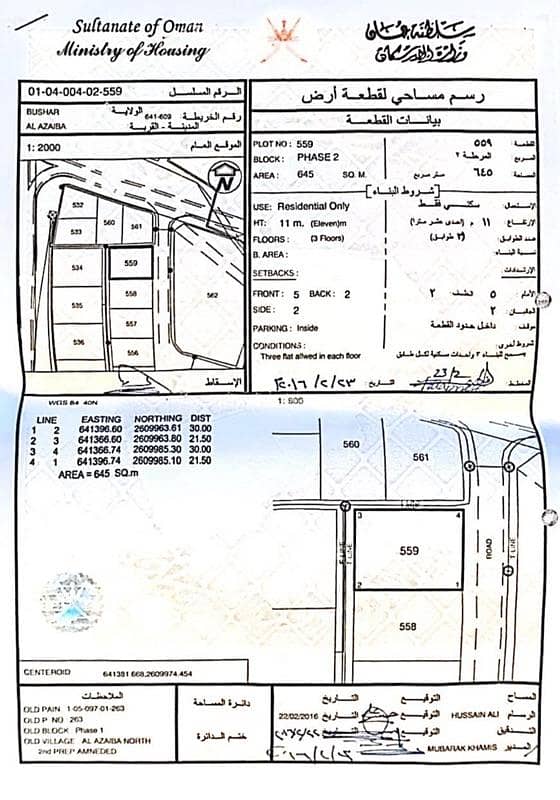 Sultanate of Oman
Ministry of Housing
سلطنة عمان
وزارة الإسكان
01-04-004-02-559 الرقم المسلسل
BUSHAR الولاية
641-609 رقم الخريطة
AL AZAIBA المدينة - القرية
1: 2000 الموقع العام
N
532
533
560
561
534
559
535
558
562
557
536
556
الإسقاط
WGS 84 40N
رسم مساحي لقطعة أرض
بيانات القطعة
PLOT NO : 559 ٥٥٩ القطعة
BLOCK : PHASE 2 المرحلة ٢ المربع
AREA : 645 SQ. M. متر مربع ٦٤٥ المساحة
شروط البناء
USE: Residential Only سكني فقط الإستعمال
HT: 11 m. (Eleven)m ١١ م (احدى عشر مترا) الإرتفاع
FLOORS : (3 Floors) (٣ طوابق) عدد الطوابق
B. AREA : نسبة البناء
SETBACKS : الإرتدادات
FRONT : 5 BACK : 2 ٢ خلف ٥ الأمام
SIDE : 2 ٢ الجانبان
PARKING : Inside داخل حدود القطعة موقف
CONDITIONS: شروط أخرى
Three flat allwed in each floor
٢٠١٦/٢/٢٣ التاريخ 23/2 المخطط
1: 500
LINE EASTING NORTHING DIST
1 2 641396.60 2609963.61 30.00
2 3 641366.60 2609963.80 21.50
3 4 641366.74 2609985.30 30.00
4 1 641396.74 2609985.10 21.50
AREA = 645 SQ.m
560
561
F LINE
3 4
559
2 1
558
ROAD
F LINE
CENTEROID 641381.668,2609974.454
الملاحظات
OLD PAIN 1-05-097-01-263
OLD P NO 263
OLD BLOCK Phase 1
OLD VILLAGE AL AZAIBA NORTH
2nd PREP AMNEDED
دائرة المساحة
ختم الدائرة
التاريخ التوقيع المساح
22/02/2016 التاريخ التوقيع HUSSAIN ALI الرسام
التاريخ التوقيع التدقيق
التوقيع MUBARAK KHAMIS المدير